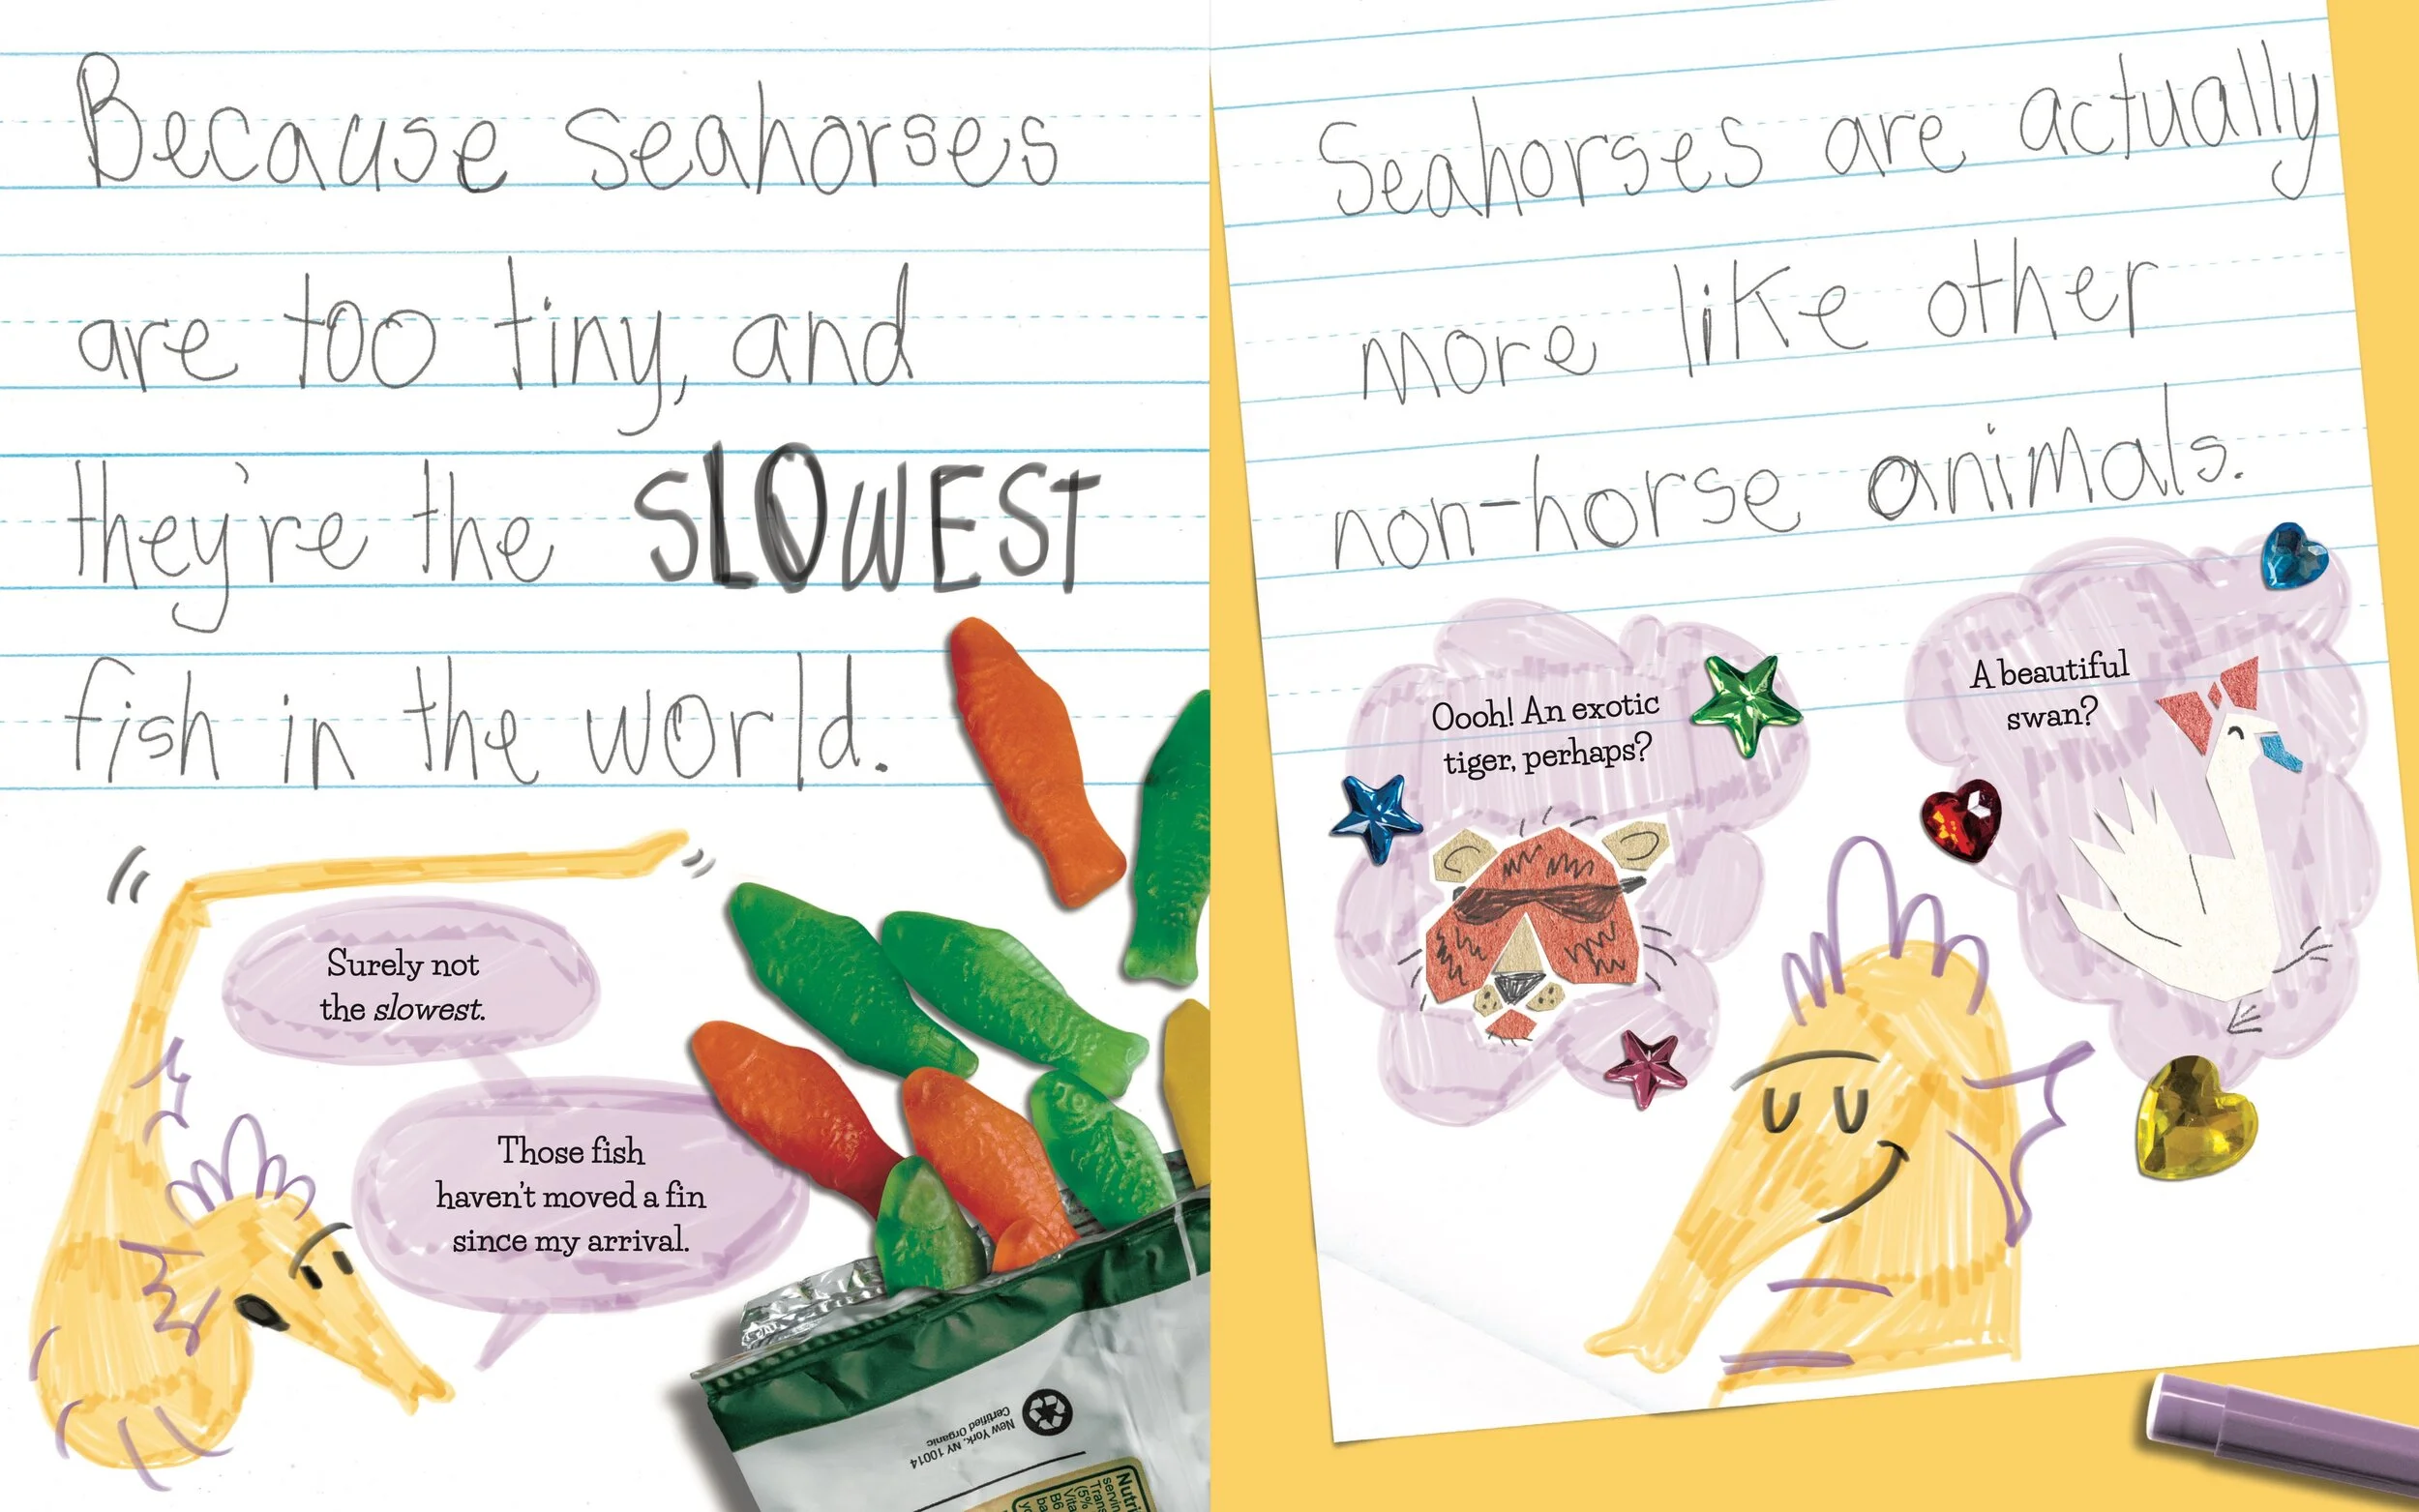 Because seahorses
are too tiny, and
they're the SLOWEST
fish in the world.
Surely not
the slowest.
Those fish
haven't moved a fin
since my arrival.
New York, NY 10014
Certified Organic
Nutri
Seahorses are actually
more like other
non-horse animals.
Oooh! An exotic
tiger, perhaps?
A beautiful
swan?